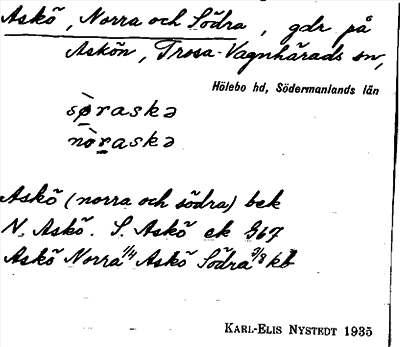 Askö, Norra och Södra, gdr på
Askön, Trosa-Vagnhärads sn,
Hölebo hd, Södermanlands län
sø̀raskə
nòraskə
Askö (norra och södra) bek
N. Askö. S. Askö ek G67
Askö Norra 1/4 Askö Södra 3/8 kb
KARL-ELIS NYSTEDT 1935